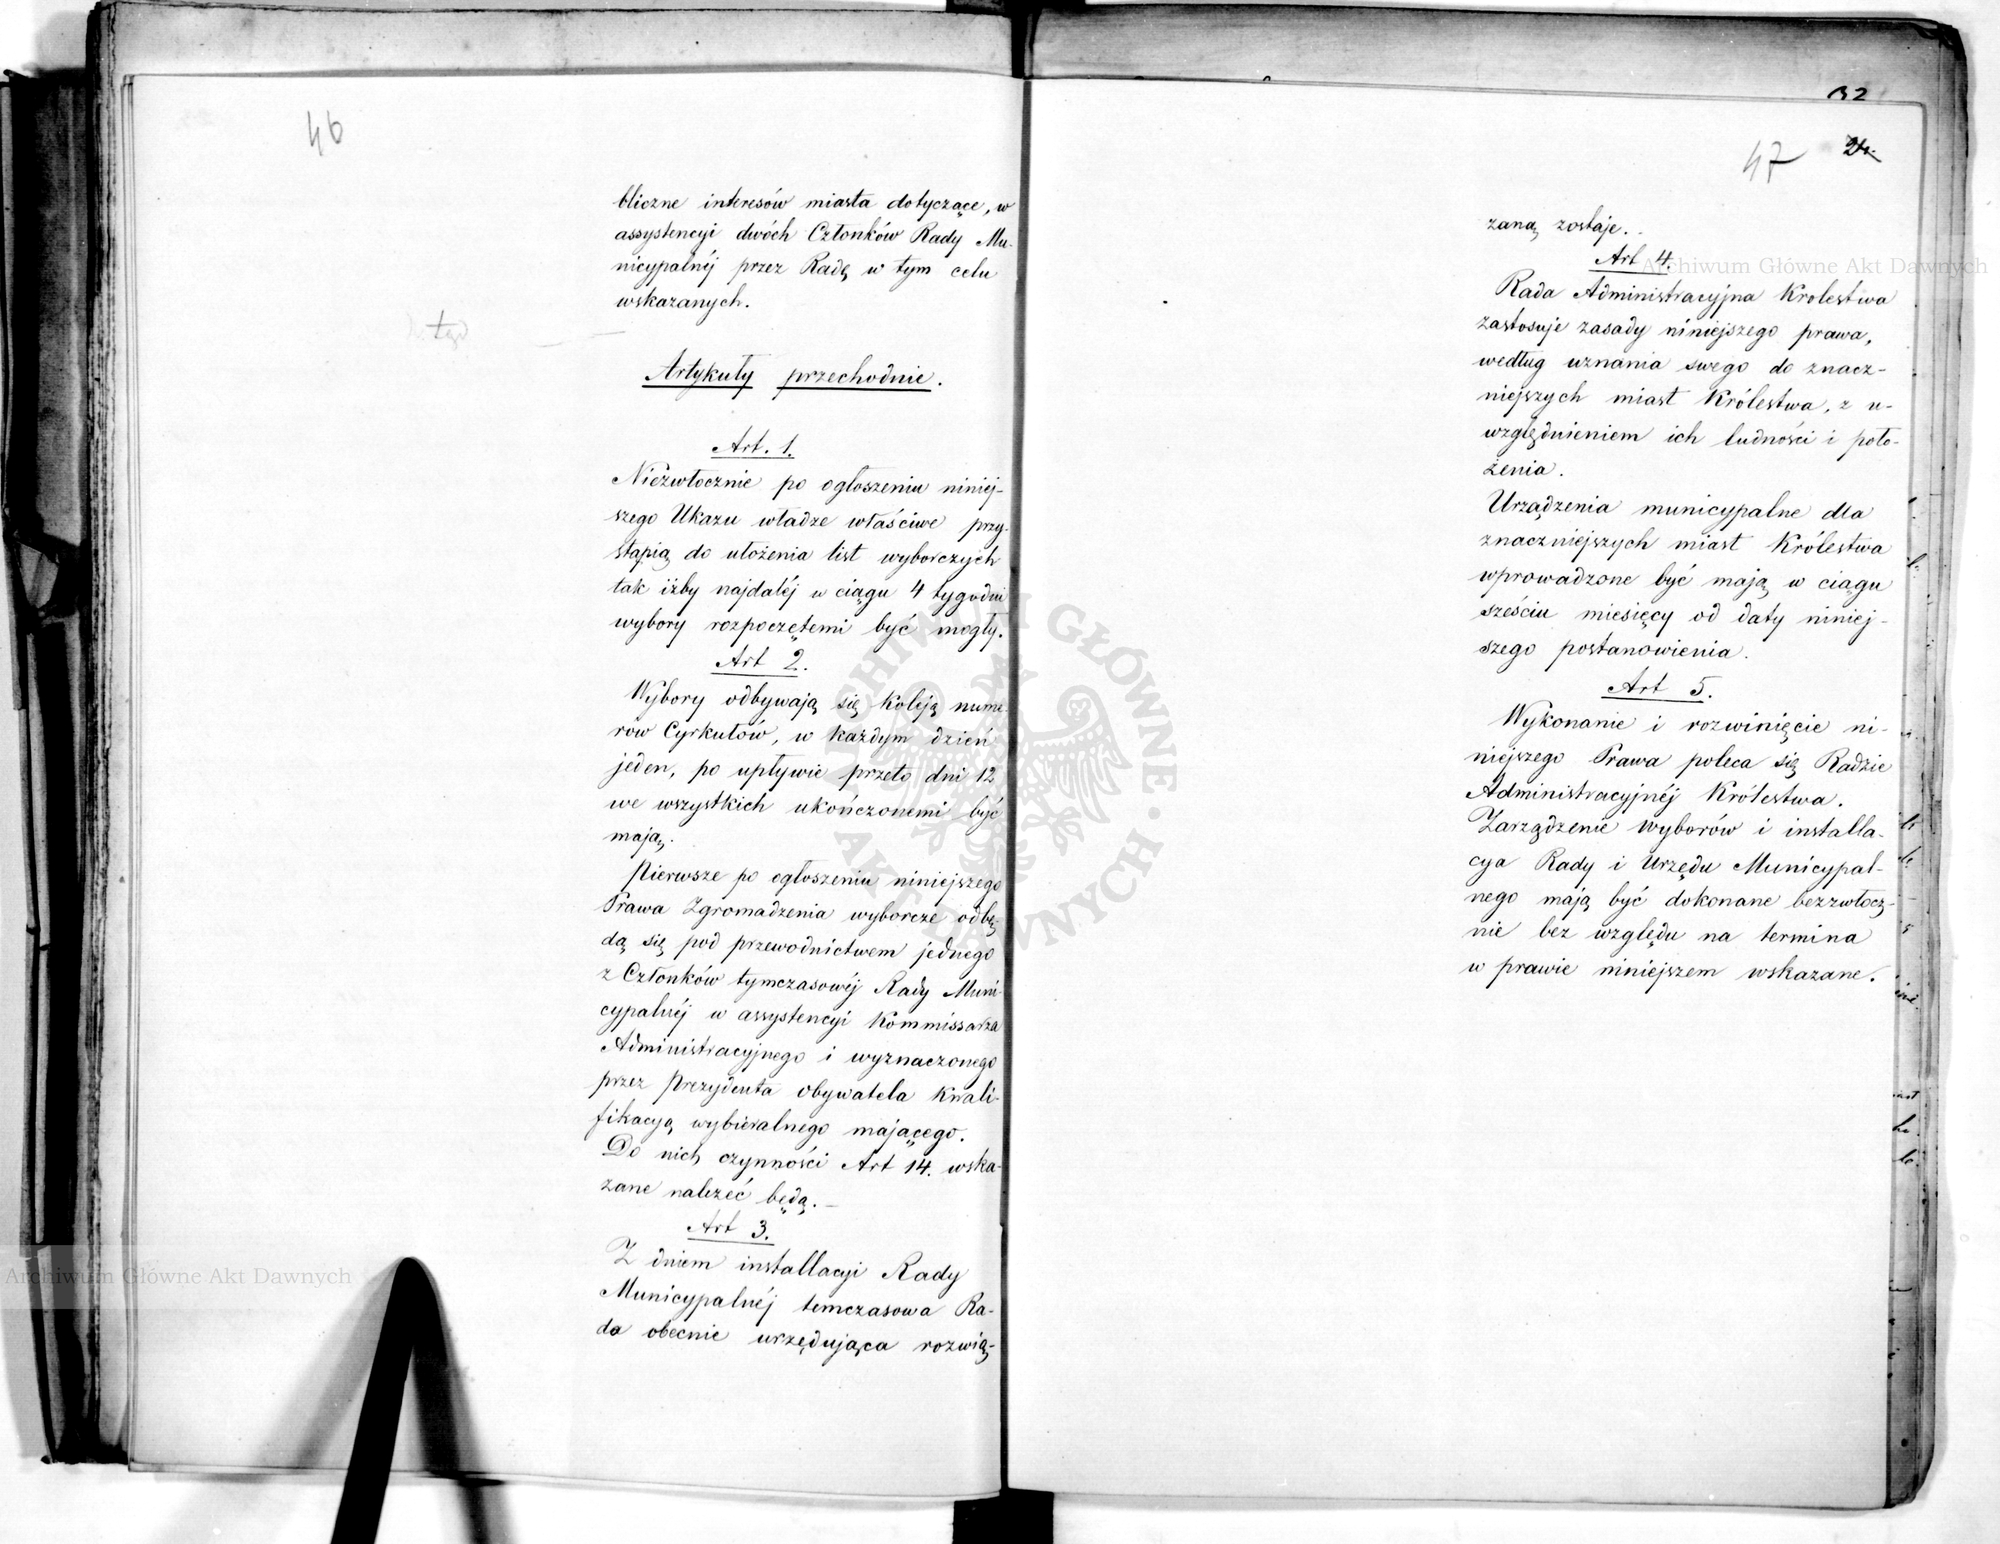 46
bliczne interesów miasta dotyczące, w
assystencyi dwóch Członków Rady Mu-
nicypalnéj przez Radę w tym celu
wskazanych.
Artykuły przechodnie.
Art. 1.
Niezwłocznie po ogłoszeniu niniej-
szego Ukazu władze właściwe przy-
stąpią do ułożenia list wyborczych
tak iżby najdaléj w ciągu 4 tygodni
wybory rozpoczętemi być mogły.
Art 2.
Wybory odbywają się koleją nume-
rów Cyrkułów, w każdym dzień
jeden, po upływie przeto dni 12
we wszystkich ukończonemi być
mają.
Pierwsze po ogłoszeniu niniejszego
Prawa Zgromadzenia wyborcze odbę-
dą się pod przewodnictwem jednego
z Członków tymczasowéj Rady Muni-
cypalnéj w assystencyi Kommissarza
Administracyjnego i wyznaczonego
przez Prezydenta obywatela kwali-
fikacyą wybieralnego mającego.
Do nich czynności Art 14. wska-
zane należeć będą.—
Art 3.
Z dniem installacyi Rady
Municypalnéj temczasowa Ra-
da obecnie urzędująca rozwią-
Archiwum Główne Akt Dawnych
ARCHIWUM GŁÓWNE · AKT DAWNYCH ·
32
47 24.
zaną zostaje.
Art 4.
Archiwum Główne Akt Dawnych
Rada Administracyjna Krolestwa
zastosuje zasady niniejszego prawa,
według uznania swego do znacz-
niejszych miast Królestwa, z u-
względnieniem ich ludności i poło-
żenia.
Urządzenia municypalne dla
znaczniejszych miast Królestwa
wprowadzone być mają w ciągu
sześciu miesięcy od daty niniej-
szego postanowienia.
Art 5.
Wykonanie i rozwinięcie ni-
niejszego Prawa poleca się Radzie
Administracyjnéj Królestwa.
Zarządzenie wyborów i installa-
cya Rady i Urzędu Municypal-
nego mają być dokonane bezzwłocz-
nie bez względu na termina
w prawie niniejszem wskazane.